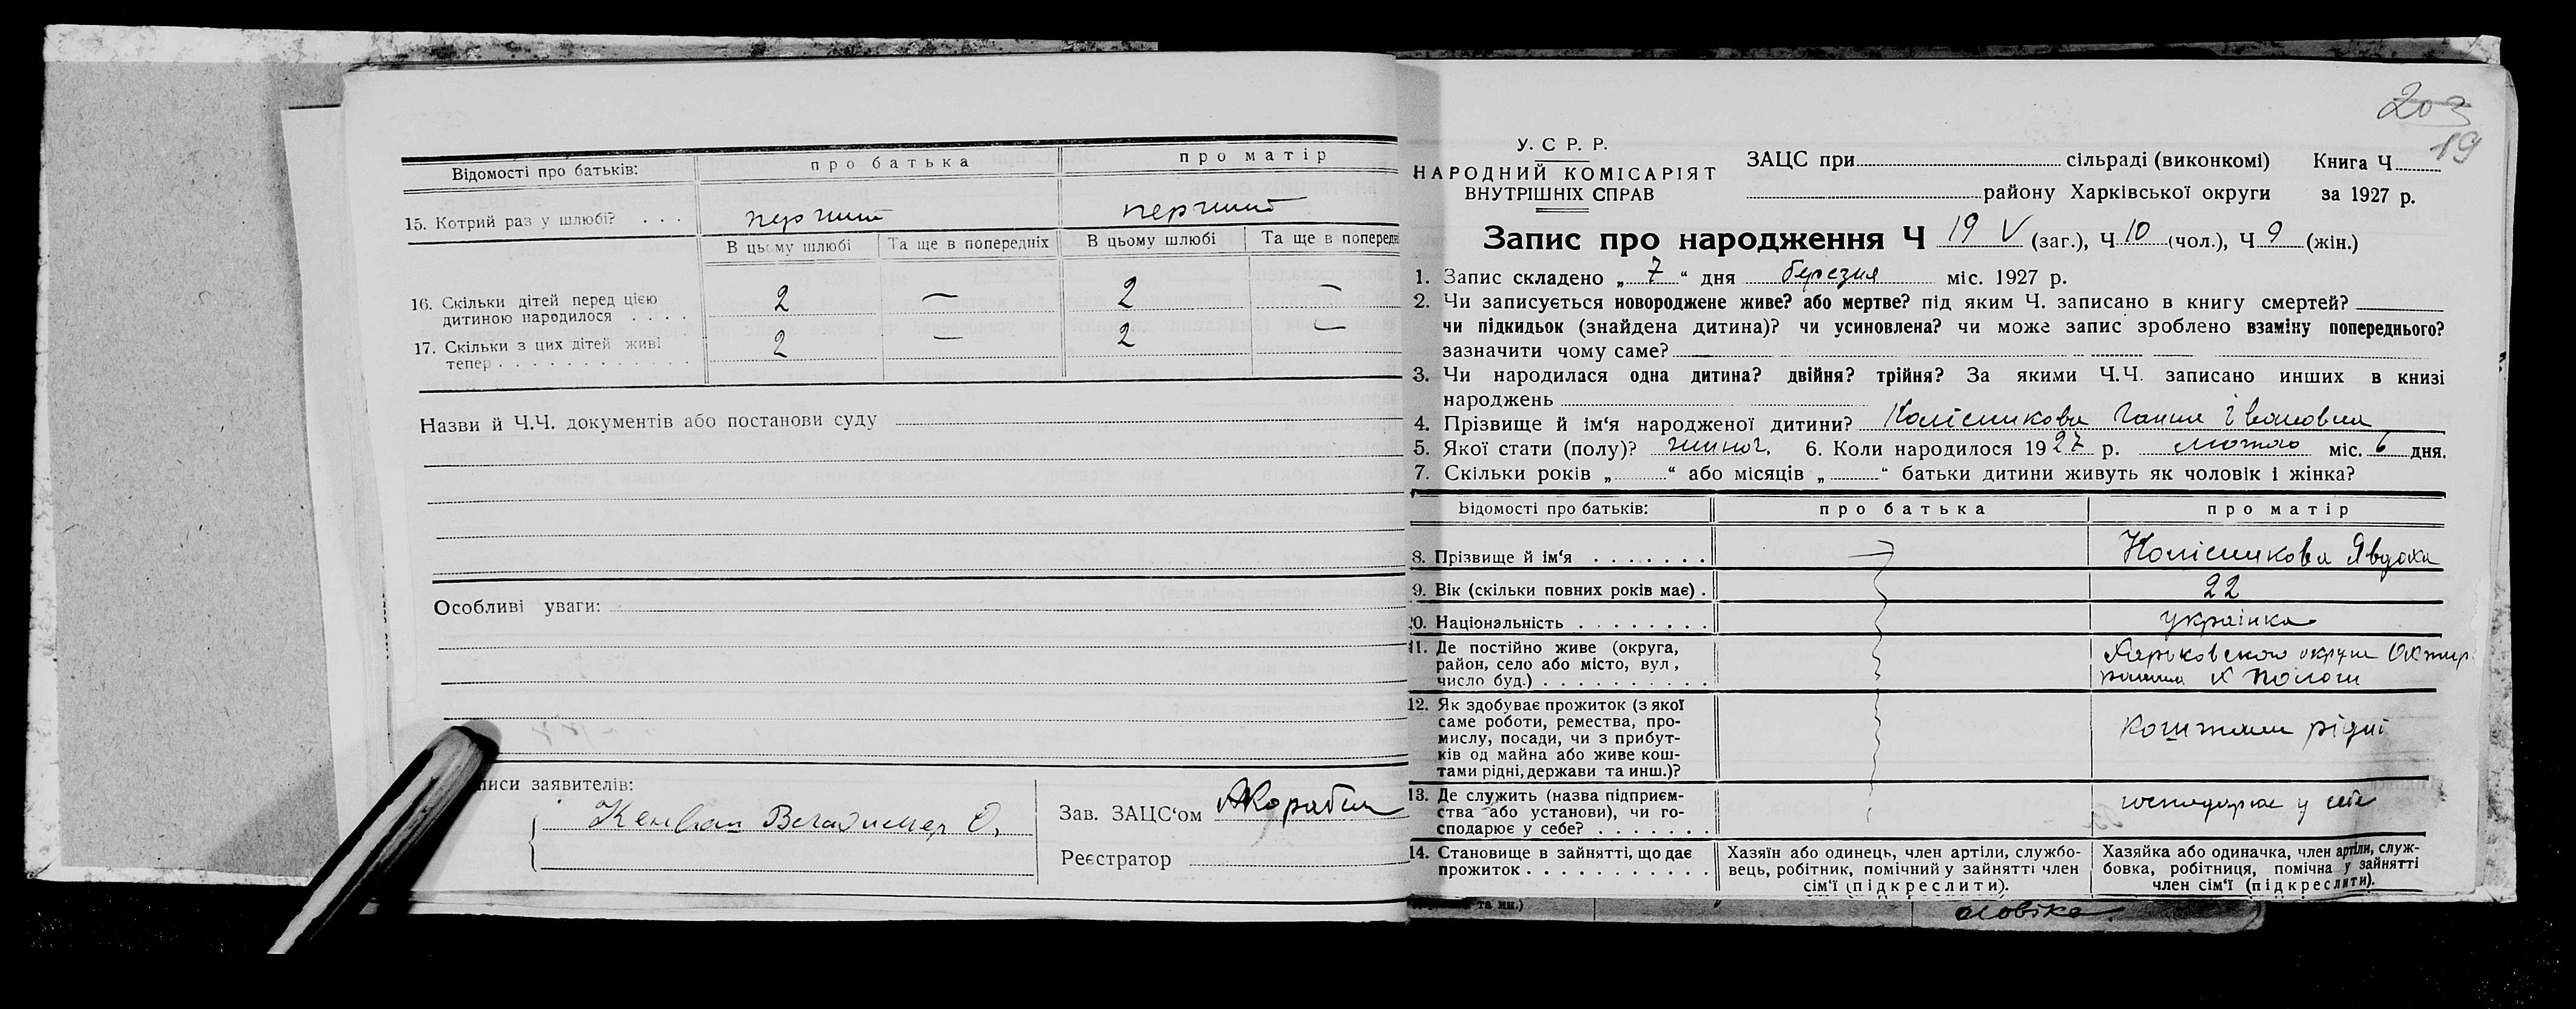 Відомості про батьків: про батька про матір
15. Котрий раз у шлюбі? . . . перший перший
В цьому шлюбі Та ще в попередніх В цьому шлюбі Та ще в поперед
16. Скільки дітей перед цією
дитиною народилося . . . . 2 — 2 —
17. Скільки з цих дітей живі
тепер . . . . . . . . . . . . 2 — 2 —
Назви й Ч.Ч. документів або постанови суду
Особливі уваги:
писи заявителів:
Володимер О.
Зав. ЗАЦС‘ом
Реєстратор
203
19
У. С Р. Р.
НАРОДНИЙ КОМІСАРІЯТ
ВНУТРІШНІХ СПРАВ
ЗАЦС при сільраді (виконкомі) Книга Ч
району Харківської округи за 1927 р.
Запис про народження Ч 19 V (заг.), Ч 10 (чол.), Ч 9 (жін.)
1. Запис складено „ 7 “ дня березня міс. 1927 р.
2. Чи записується новороджене живе? або мертве? під яким Ч. записано в книгу смертей?
чи підкидьок (знайдена дитина)? чи усиновлена? чи може запис зроблено взаміну попереднього?
зазначити чому саме? —
3. Чи народилася одна дитина? двійня? трійня? За якими Ч.Ч. записано инших в книзі
народжень
4. Прізвище й ім‘я народженої дитини? Колісникова Ганна Івановна
5. Якої стати (полу)? жіноч. 6. Коли народилося 1927 р. лютого міс. 6 дня.
7. Скільки років „ “ або місяців „ “ батьки дитини живуть як чоловік і жінка?
Відомості про батьків: про батька про матір
8. Прізвище й ім‘я . . . . . . . — Колісникова Явдоха
9. Вік (скільки повних років має) . 22
10. Національність . . . . . . . . українка
11. Де постійно живе (округа,
район, село або місто, вул,
число буд.) . . . . . . . . . .
Харьковскоі округи
12. Як здобуває прожиток (з якої
саме роботи, ремества, про-
мислу, посади, чи з прибут-
ків од майна або живе кош-
тами рідні, держави та инш.)?
коштами рідні
13. Де служить (назва підприєм-
ства або установи), чи го-
сподарює у себе? . . . . . . .
господарює у себе
14. Становище в зайнятті, що дає
прожиток . . . . . . . . . . .
Хазяїн або одинець, член артіли, службо-
вець, робітник, помічний у зайнятті член
сім‘ї (підкреслити).
Хазяйка або одиначка, член артіли, служ-
бовка, робітниця, помічна у зайнятті
член сім‘ї (підкреслити).
та ин.)